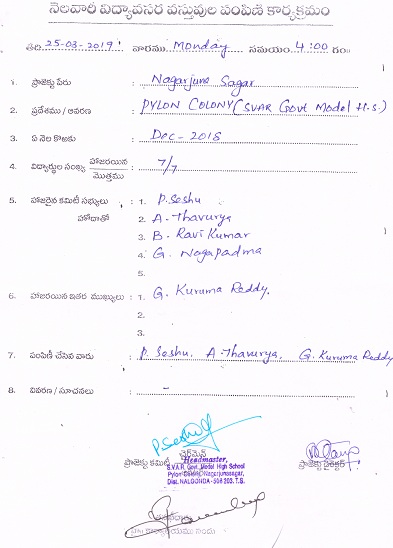 నెలవారీ విద్యావసర వస్తువుల పంపిణి కార్యక్రమం
తేది 25-03-2019 వారము Monday సమయం 4:00 గం
1. ప్రాజెక్టు పేరు : Nagarjuna Sagar
2. ప్రదేశము / ఆవరణ : PYLON COLONY (SVAR Govt Model H.S.)
3. ఏ నెల కొఱకు : Dec-2018
4. విద్యార్థుల సంఖ్య హాజరయిన / మొత్తము : 7/7
5. హాజరైన కమిటీ సభ్యులు : 1. P. Seshu
హోదాతో 2. A. Thavurya
3. B. Ravi Kumar
4. G. Nagapadma
5.
6. హాజరయిన ఇతర ముఖ్యులు : 1. G. Kuruma Reddy.
2.
3.
7. పంపిణీ చేసిన వారు : P. Seshu. A. Thavurya. G. Kuruma Reddy
8. వివరణ / సూచనలు : -
P. Seshu
ప్రాజెక్టు కమిటీ ఛైర్మెన్
ప్రాజెక్టు డైరెక్టర్
Headmaster,
S.V.A.R. Govt. Model High School
Pylon Colony, Nagarjunasagar,
Dist. NALGONDA - 508 203. T.S.